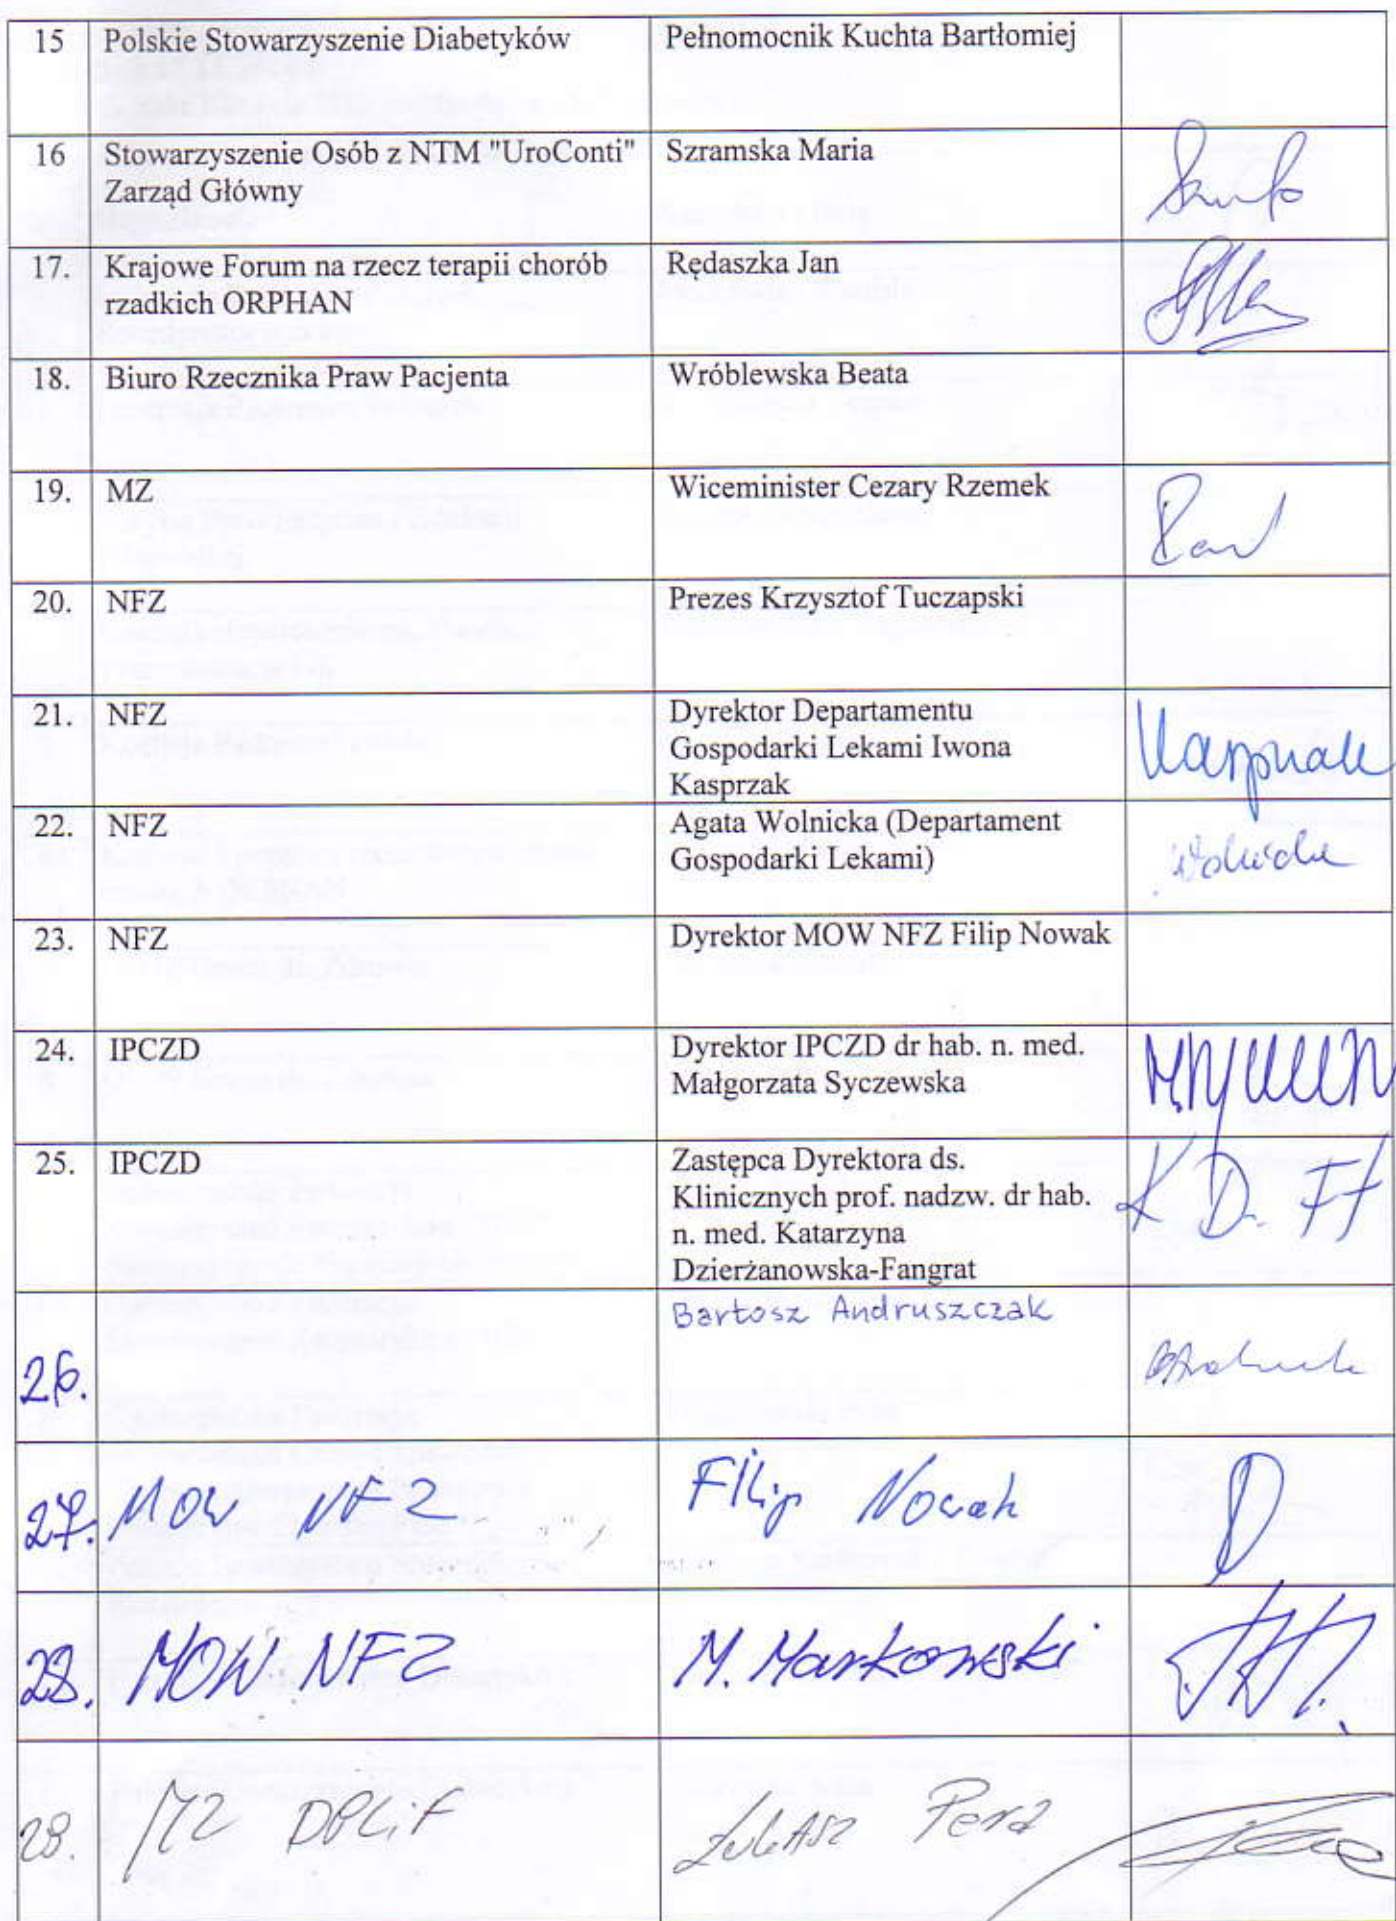 15 Polskie Stowarzyszenie Diabetyków Pełnomocnik Kuchta Bartłomiej
16 Stowarzyszenie Osób z NTM "UroConti" Szramska Maria
Zarząd Główny
17. Krajowe Forum na rzecz terapii chorób Rędaszka Jan
rzadkich ORPHAN
18. Biuro Rzecznika Praw Pacjenta Wróblewska Beata
19. MZ Wiceminister Cezary Rzemek
20. NFZ Prezes Krzysztof Tuczapski
21. NFZ Dyrektor Departamentu
Gospodarki Lekami Iwona
Kasprzak
22. NFZ Agata Wolnicka (Departament
Gospodarki Lekami)
23. NFZ Dyrektor MOW NFZ Filip Nowak
24. IPCZD Dyrektor IPCZD dr hab. n. med.
Małgorzata Syczewska
25. IPCZD Zastępca Dyrektora ds.
Klinicznych prof. nadzw. dr hab.
n. med. Katarzyna
Dzierżanowska-Fangrat
K D. F
26. Bartosz Andruszczak
27. MOW NFZ Filip Nowak
28. MOW NFZ M. Markowski
28. MZ Łukasz